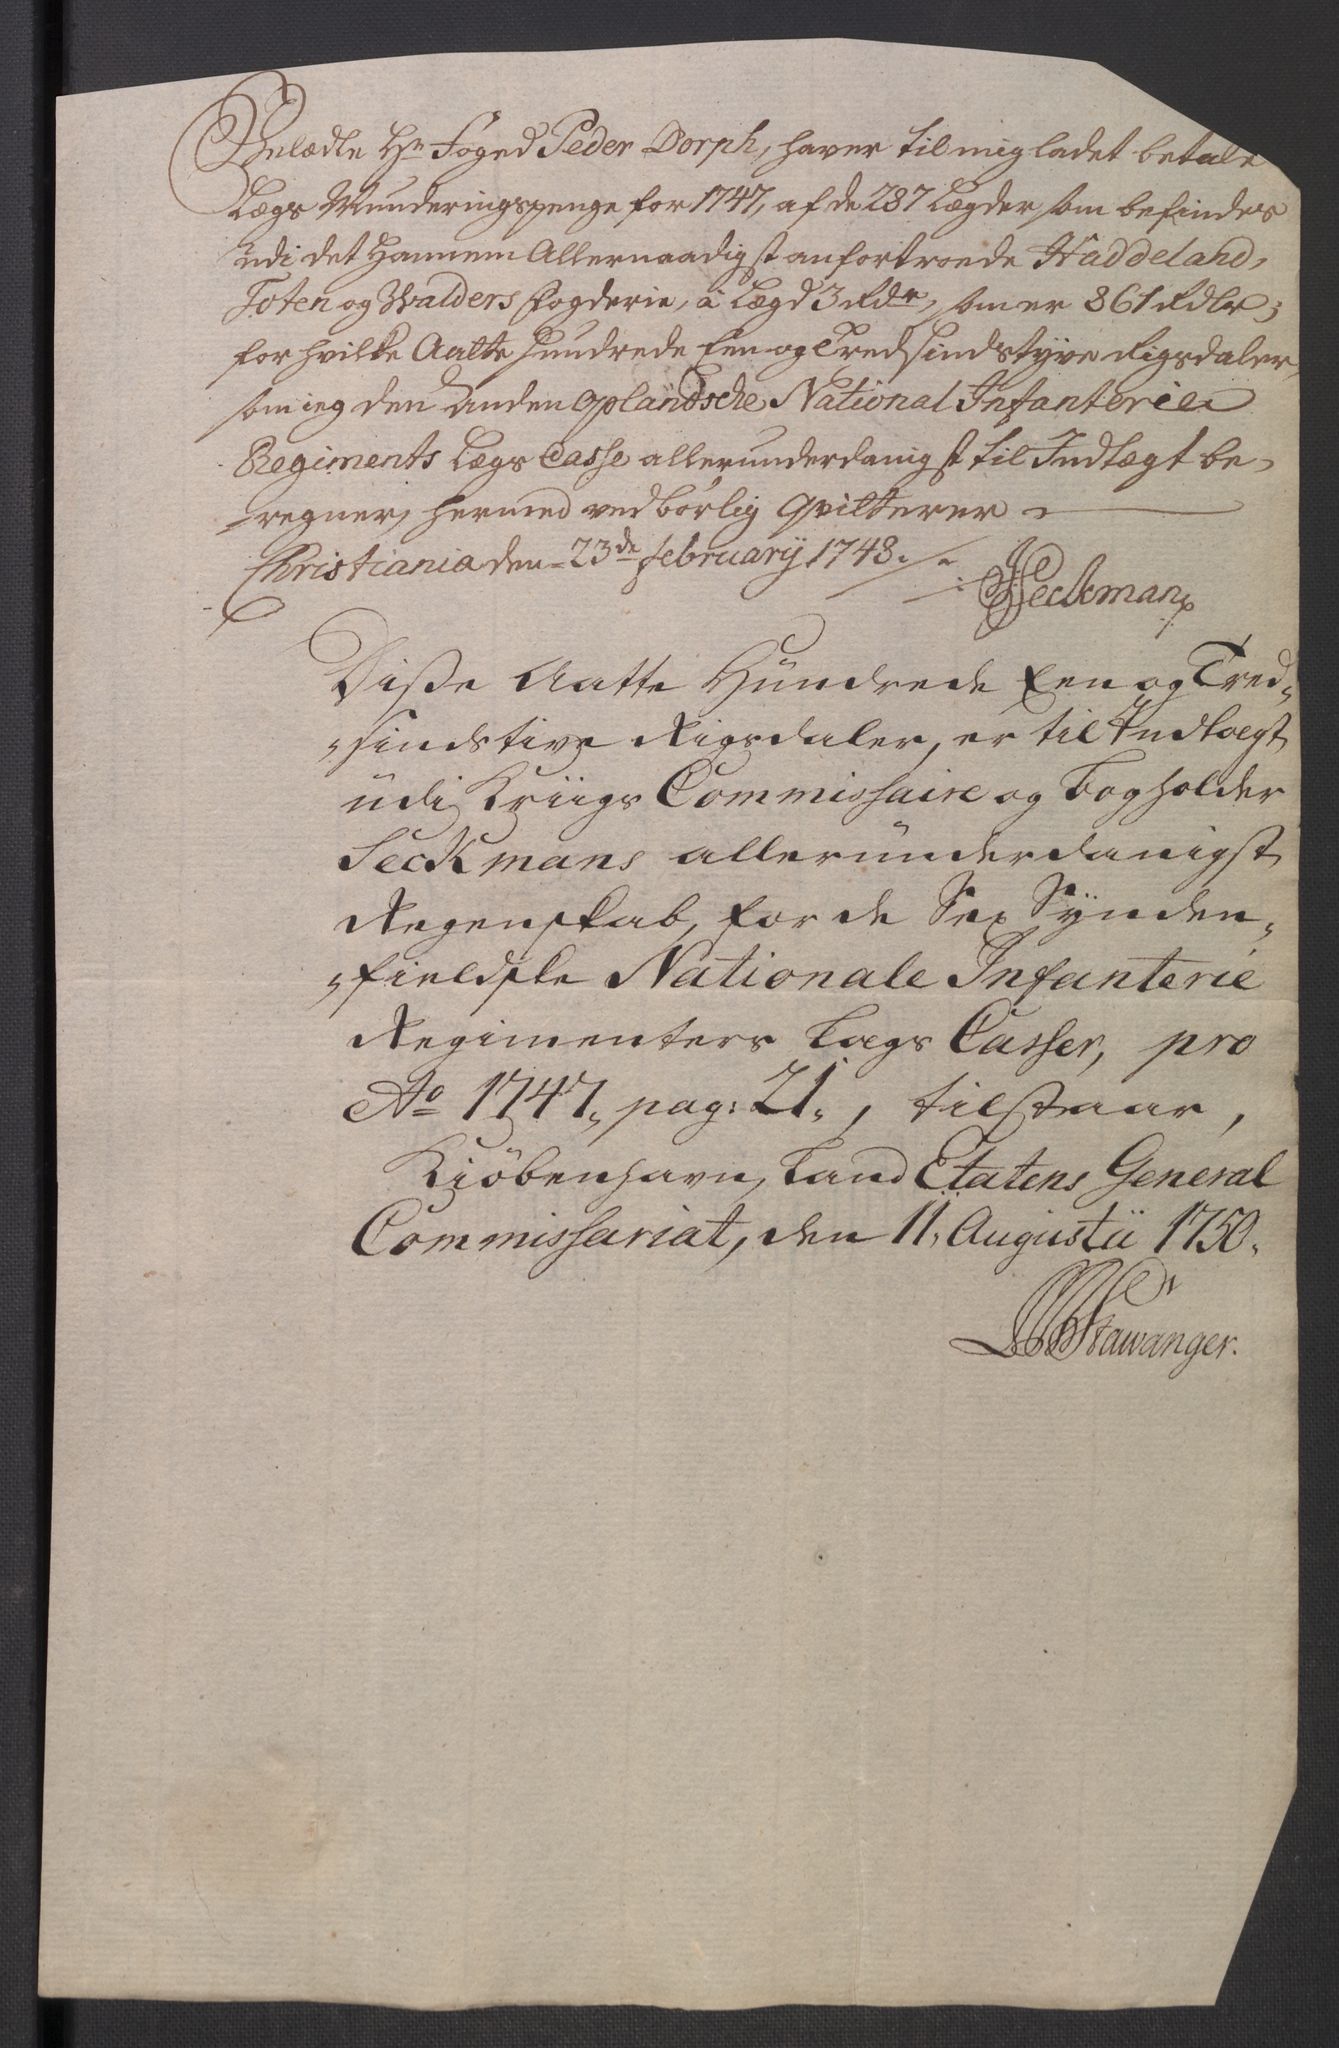 Velædle Hr Foged Peder Dorph, haver til mig ladet betale
Lægs Munderingspenge for 1747, af de 287 Lægder som befindes
udi det hannem Allernaadigst anfortroede Haddeland,
Toten og Walders Fogderie, â Lægd 3 Rdr, som er 861 Rdlr;
for hvilke Aatte Hundrede Een og Tredsindstÿve Rigsdaler,
som ieg den Anden Oplandsche National Infanterie
Regiments Lægs Casse allerunderdanigst til Indtægt be-
regner, hermed ved børlig Qvitterer
Christiania den 23de februarÿ 1748.
Seckman
Diße Aatte Hundrede Een og Tred-
sindstive Rigsdaler, er til Indtægt
udi Kriigs Commissaire og Bogholder
Seckmans allerunderdanigst
Regenskab, for de Sex Sÿnden-
fieldske Nationale Infanterie
Regimenters Lægs Casser, pro
Ao 1747, pag: 21, tilstaar,
Kiöbenhavn, Land Etatens General
Commissariat, den 11, Augustii 1750.
Stawanger.